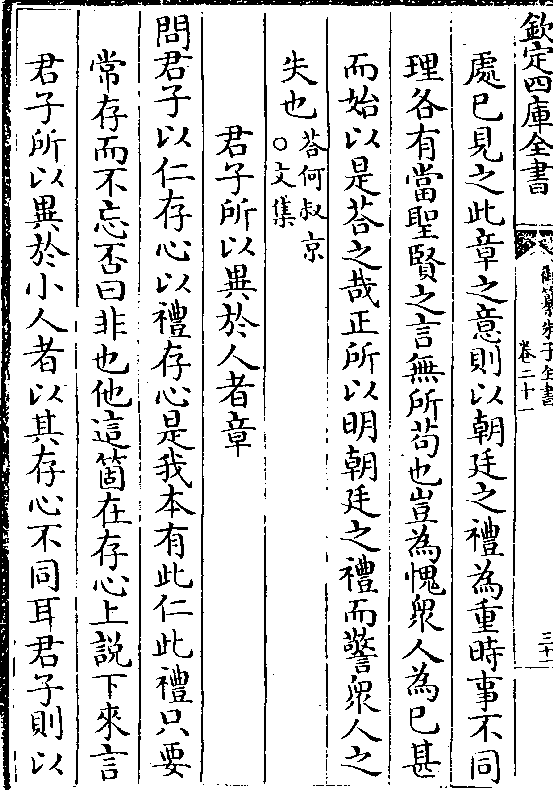 欽定四庫全書
御纂朱子全書
卷二十一
三十
處已見之此章之意則以朝廷之禮為重時事不同
理各有當聖賢之言無所苟也豈為愧衆人為已甚
而始以是荅之哉正所以明朝廷之禮而警衆人之
失也荅何叔京○文集
君子所以異於人者章
問君子以仁存心以禮存心是我本有此仁此禮只要
常存而不忘否曰非也他這箇在存心上說下來言
君子所以異於小人者以其存心不同耳君子則以